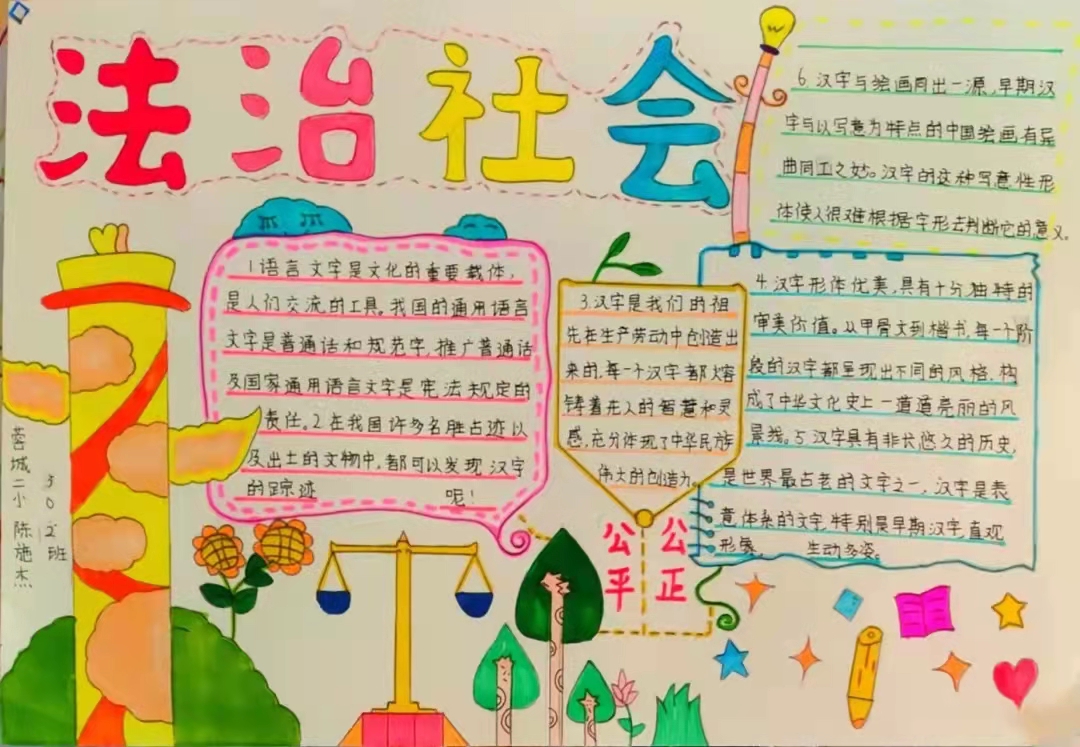 法治社会
1 语言文字是文化的重要载体,
是人们交流的工具。我国的通用语言
文字是普通话和规范字,推广普通话
及国家通用语言文字是宪法规定的
责任。2 在我国许多名胜古迹以
及出土的文物中,都可以发现汉字
的踪迹呢!
3 汉字是我们的祖
先在生产劳动中创造出
来的,每一个汉字都熔
铸着先人的智慧和灵
感,充分体现了中华民族
伟大的创造力。
6 汉字与绘画同出一源,早期汉
字与以写意为特点的中国绘画有异
曲同工之妙。汉字的这种写意性形
体使人很难根据字形去判断它的意义。
4 汉字形体优美,具有十分独特的
审美价值。从甲骨文到楷书,每一个阶
段的汉字都呈现出不同的风格,构
成了中华文化史上一道道亮丽的风
景线。5 汉字具有非长悠久的历史,
是世界最古老的文字之一,汉字是表
意体系的文字,特别是早期汉字,直观
形象,生动多姿。
公平
公正
蓉城二小 陈施杰
302班